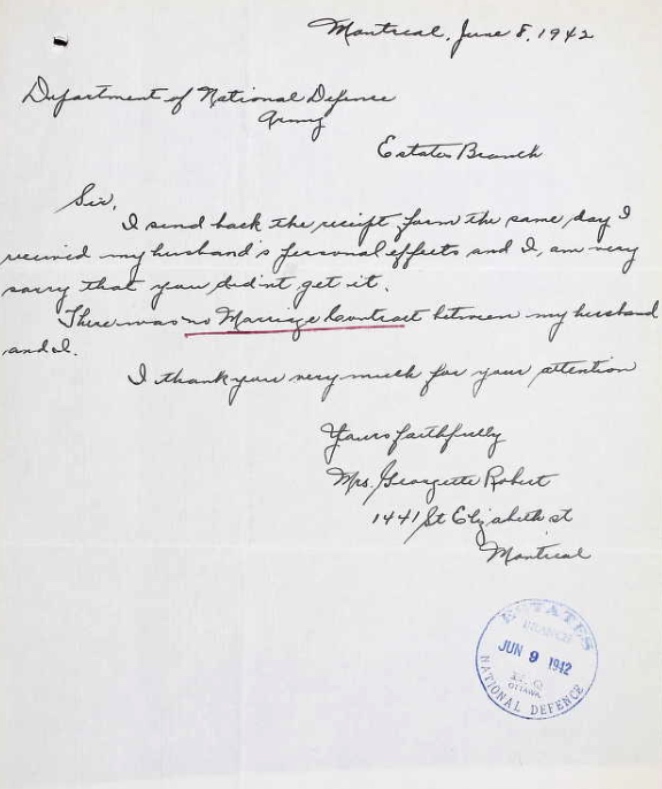 Montreal, June 8, 1942
Department of National Defence
Army
Estates Branch
Sir,
I send back the reciept form the same day I
received my husband's personal effects and I, am very
sorry that you did'nt get it.
There was no Marriage Contract between my husband
and I.
I thank you very much for your attention
Yours faithfully
Mrs. Georgette Robert
1441 St Elizabeth st
Montreal
ESTATES
BRANCH
JUN 9 1942
OTTAWA
NATIONAL DEFENCE